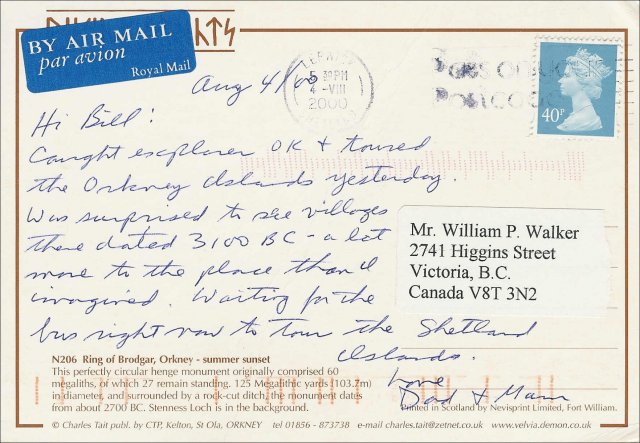 BY AIR MAIL
par avion
Royal Mail
LERWICK
5 30PM
4 -VIII
2000
POSTCODE
40P
Aug 4/00
Hi Bill:
Caught explorer OK + toured
the Orkney Islands yesterday.
Was surprised to see villages
there dated 3100 BC - a lot
more to the place than I
imagined. Waiting for the
bus right now to tour the Shetland
Islands.
Love
Dad & Mum
Mr. William P. Walker
2741 Higgins Street
Victoria, B.C.
Canada V8T 3N2
N206 Ring of Brodgar, Orkney - summer sunset
This perfectly circular henge monument originally comprised 60
megaliths, of which 27 remain standing. 125 Megalithic yards (103.7m)
in diameter, and surrounded by a rock-cut ditch, the monument dates
from about 2700 BC. Stenness Loch is in the background.
Printed in Scotland by Nevisprint Limited, Fort William.
© Charles Tait publ. by CTP, Kelton, St Ola, ORKNEY tel 01856 - 873738 e-mail charles.tait@zetnet.co.uk www.velvia.demon.co.uk